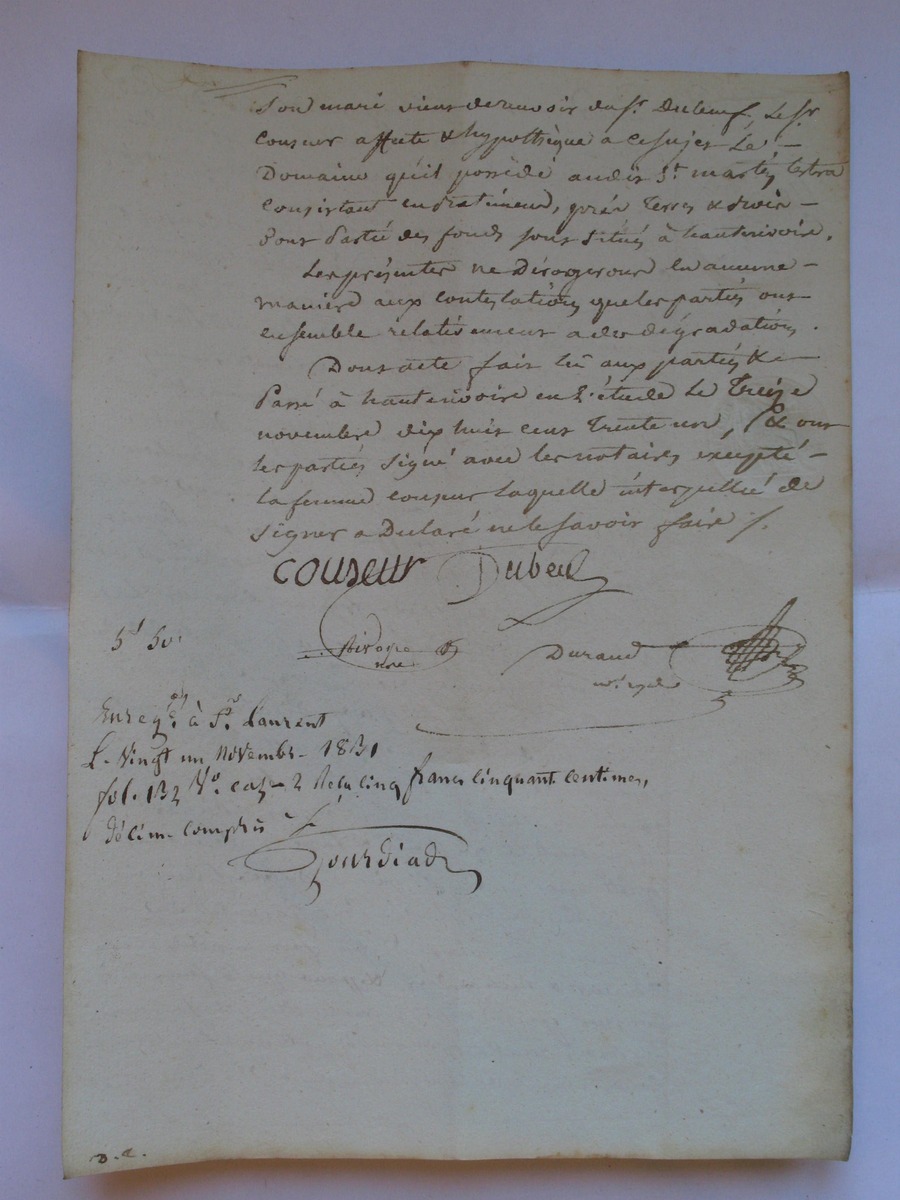 Son mari vient de recevoir du Sr. Dubeuf, Le Sr
Couseur affecte & hypothèque a ce sujet Le
Domaine qu'il possède audit St. martin lestra
Consistant en batiment, prés Terres & bois
dont Partie des fonds sont situés à hauterivoire.
Les présentes ne Dérogeront en aucune
manière aux contestations que les parties ont
ensemble relativement a des dégradations.
Dont acte fait lû aux parties &
Passé à hauterivoire en l'étude Le Treize
novembre dix huit cent Trente un, & ont
les parties signé avec les notaires excepté
la femme couseur laquelle interpellée de
signer a Déclaré ne le savoir faire /.
couseur Dubeuf
Durand
5f 50c
Enregé. à St. Laurent
L. Vingt un Novembr. 1831
fol. 132 Vo. case 2 Reçu cinq francs cinquant. centimes,
décim. compris
D. C.